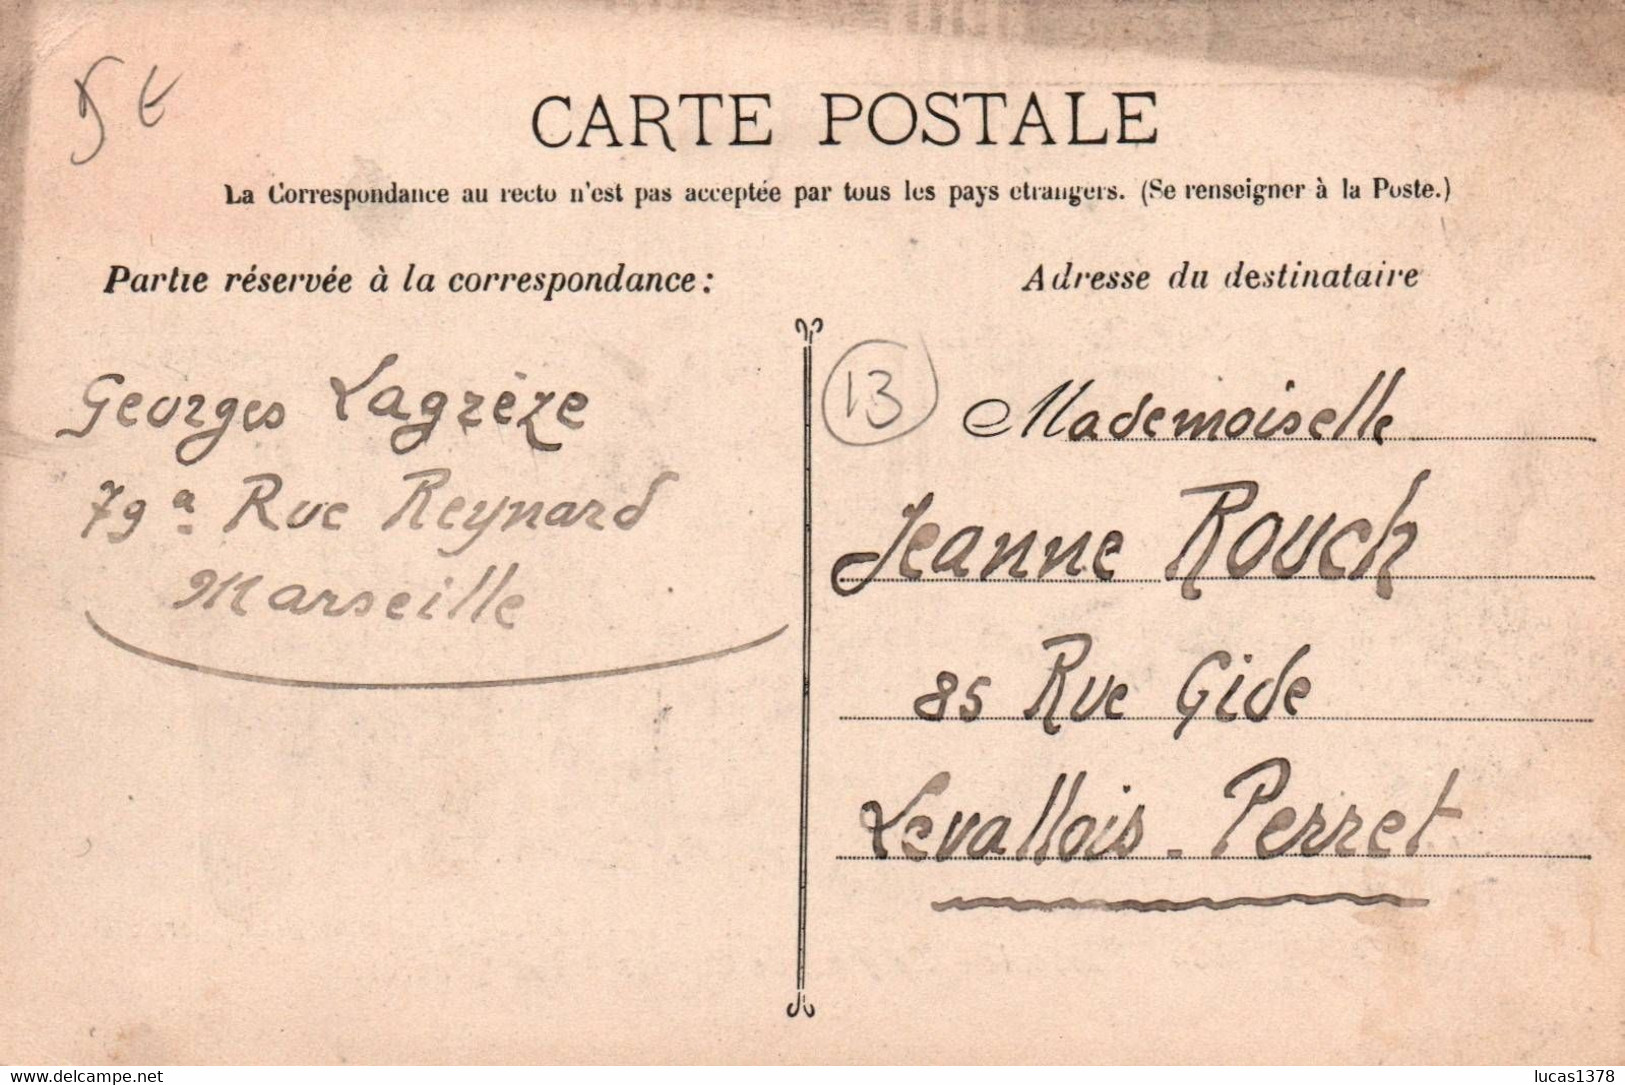 5 €
CARTE POSTALE
La Correspondance au recto n'est pas acceptée par tous les pays etrangers. (Se renseigner à la Poste.)
Partie réservée à la correspondance:
Georges Lagrèze
79a Rue Reynard
Marseille
Adresse du destinataire
13
Mademoiselle
Jeanne Rouch
85 Rue Gide
Levallois-Perret
www.delcampe.net
lucas1378